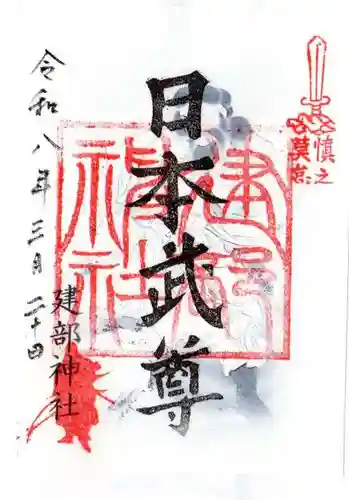 慎之
莫怠
日本武尊
建部神社
令和八年三月二十日
建部神社